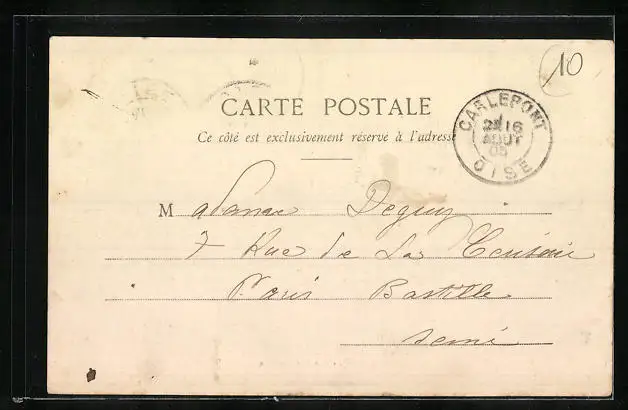 10
CARTE POSTALE
Ce côté est exclusivement réservé à l'adresse
CARLEPONT
16
AOUT
05
OISE
Madame Deguy
7 Rue de La Cerisaie
Paris Bastille
Seine